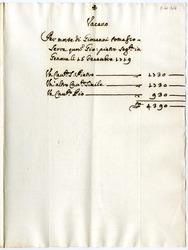 Vacano
Per morte di Giovanni tomaso
Serra quon. Gio: pietro Seg.to in
Genova li 25 Decembre 1729
Un Cau.to S. Pietro 1730
Un altro Cau.to Simile 1730
Un Cau.to Pio 930
4390